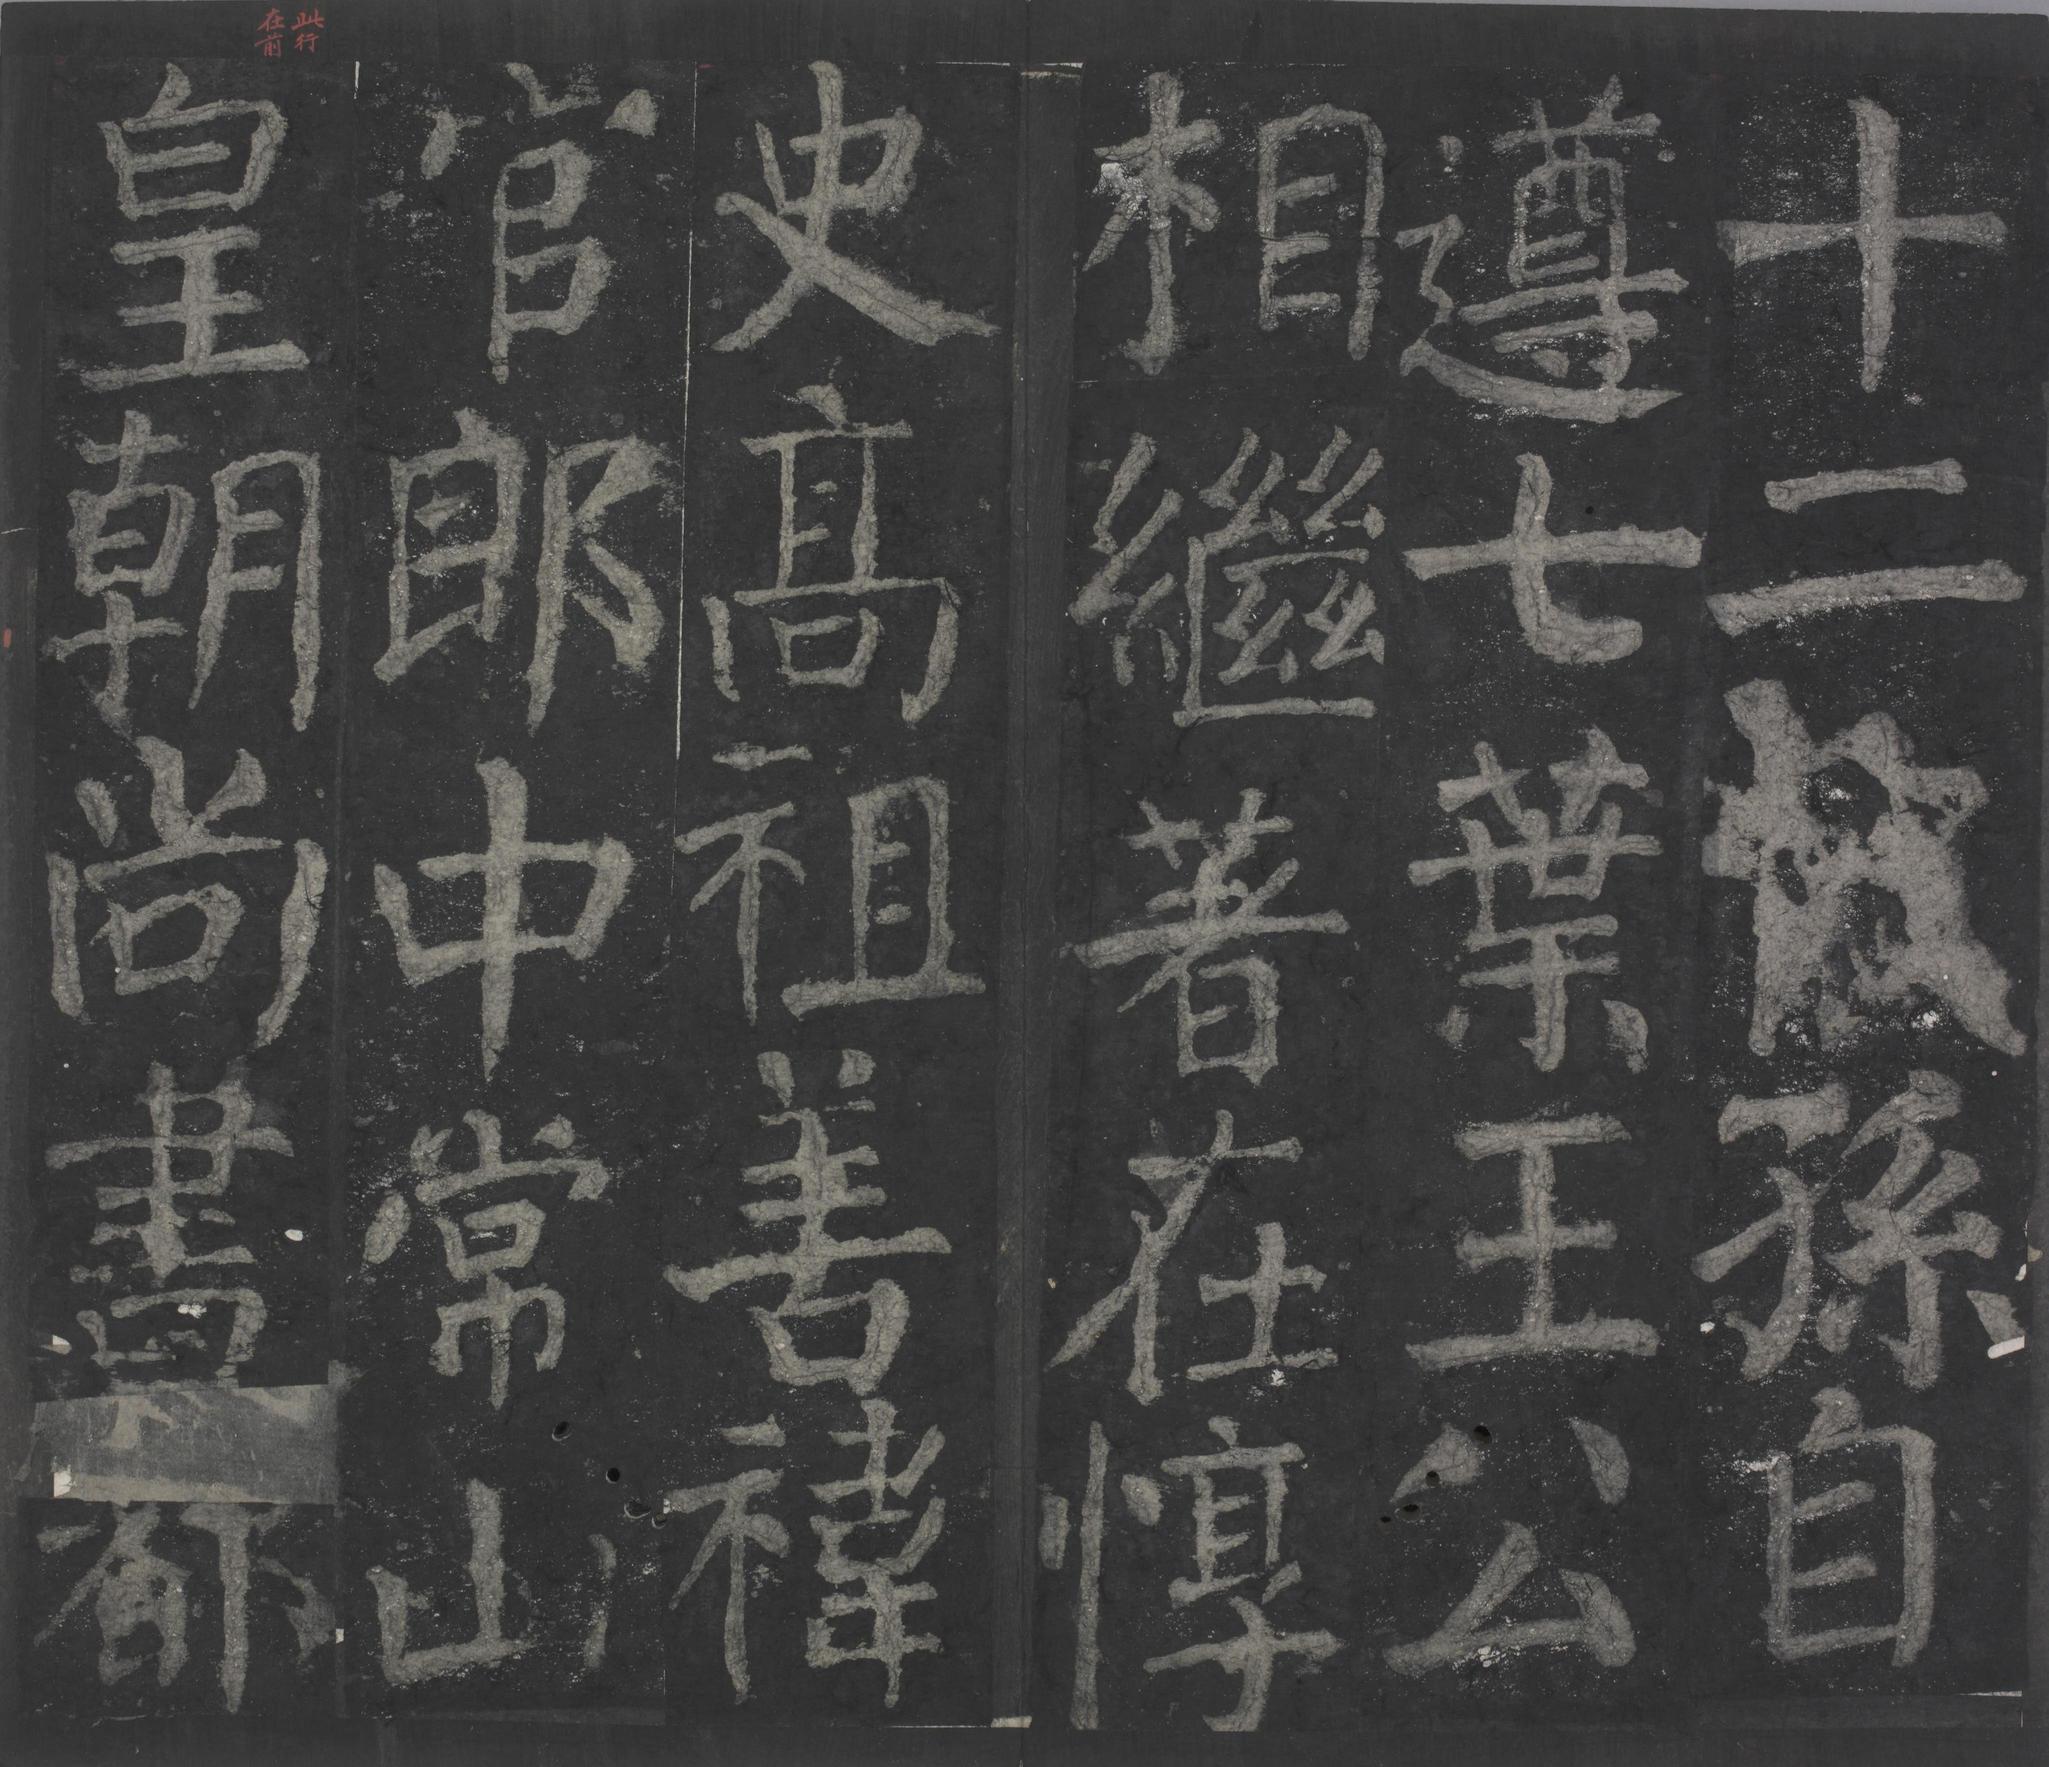 十二孫自
遵七葉王公
相繼著在惇
史高祖善禕
官郎中常山
此行
在前
皇朝尚書都